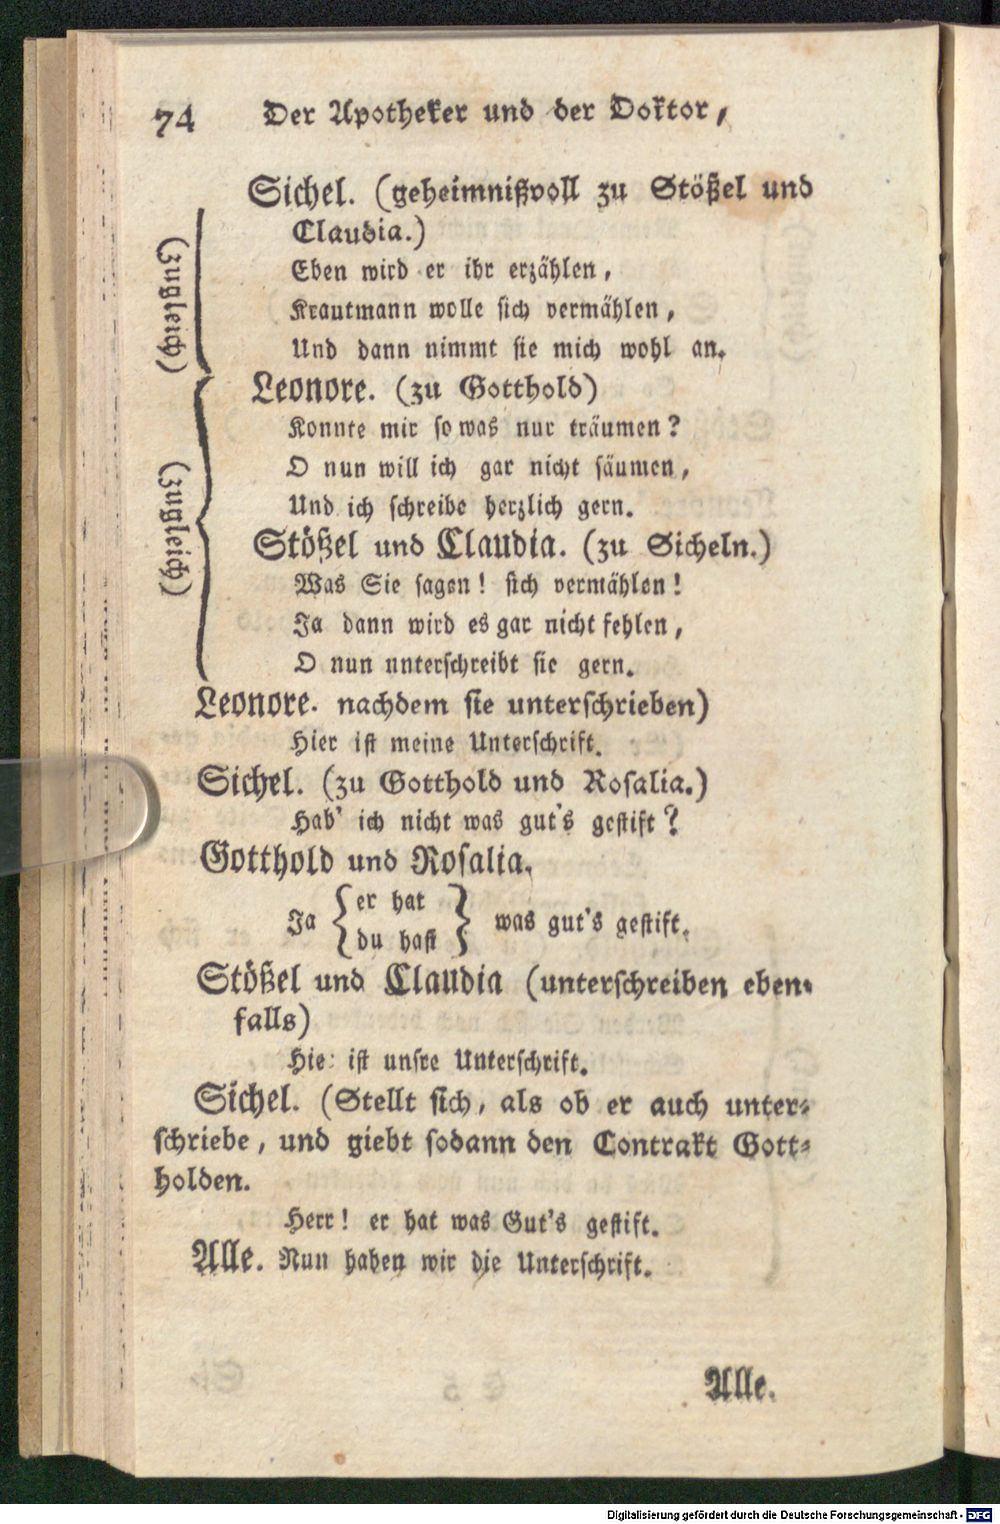 74 Der Apotheker und der Doktor,
Sichel. (geheimnißvoll zu Stößel und
Claudia.)
Eben wird er ihr erzählen,
Krautmann wolle sich vermählen,
Und dann nimmt sie mich wohl an.
(zugleich)
Leonore. (zu Gotthold)
Konnte mir so was nur träumen?
O nun will ich gar nicht säumen,
Und ich schreibe herzlich gern.
(zugleich)
Stößel und Claudia. (zu Sicheln.)
Was Sie sagen! sich vermählen!
Ja dann wird es gar nicht fehlen,
O nun unterschreibt sie gern.
Leonore. nachdem sie unterschrieben)
Hier ist meine Unterschrift.
Sichel. (zu Gotthold und Rosalia.)
Hab' ich nicht was gut's gestift?
Gotthold und Rosalia.
Ja {er hat / du hast} was gut's gestift.
Stößel und Claudia (unterschreiben eben-
falls)
Hie: ist unsre Unterschrift.
Sichel. (Stellt sich, als ob er auch unter-
schriebe, und giebt sodann den Contrakt Gott-
holden.
Herr! er hat was Gut's gestift.
Alle. Nun haben wir die Unterschrift.
Alle.
Digitalisierung gefördert durch die Deutsche Forschungsgemeinschaft - DFG